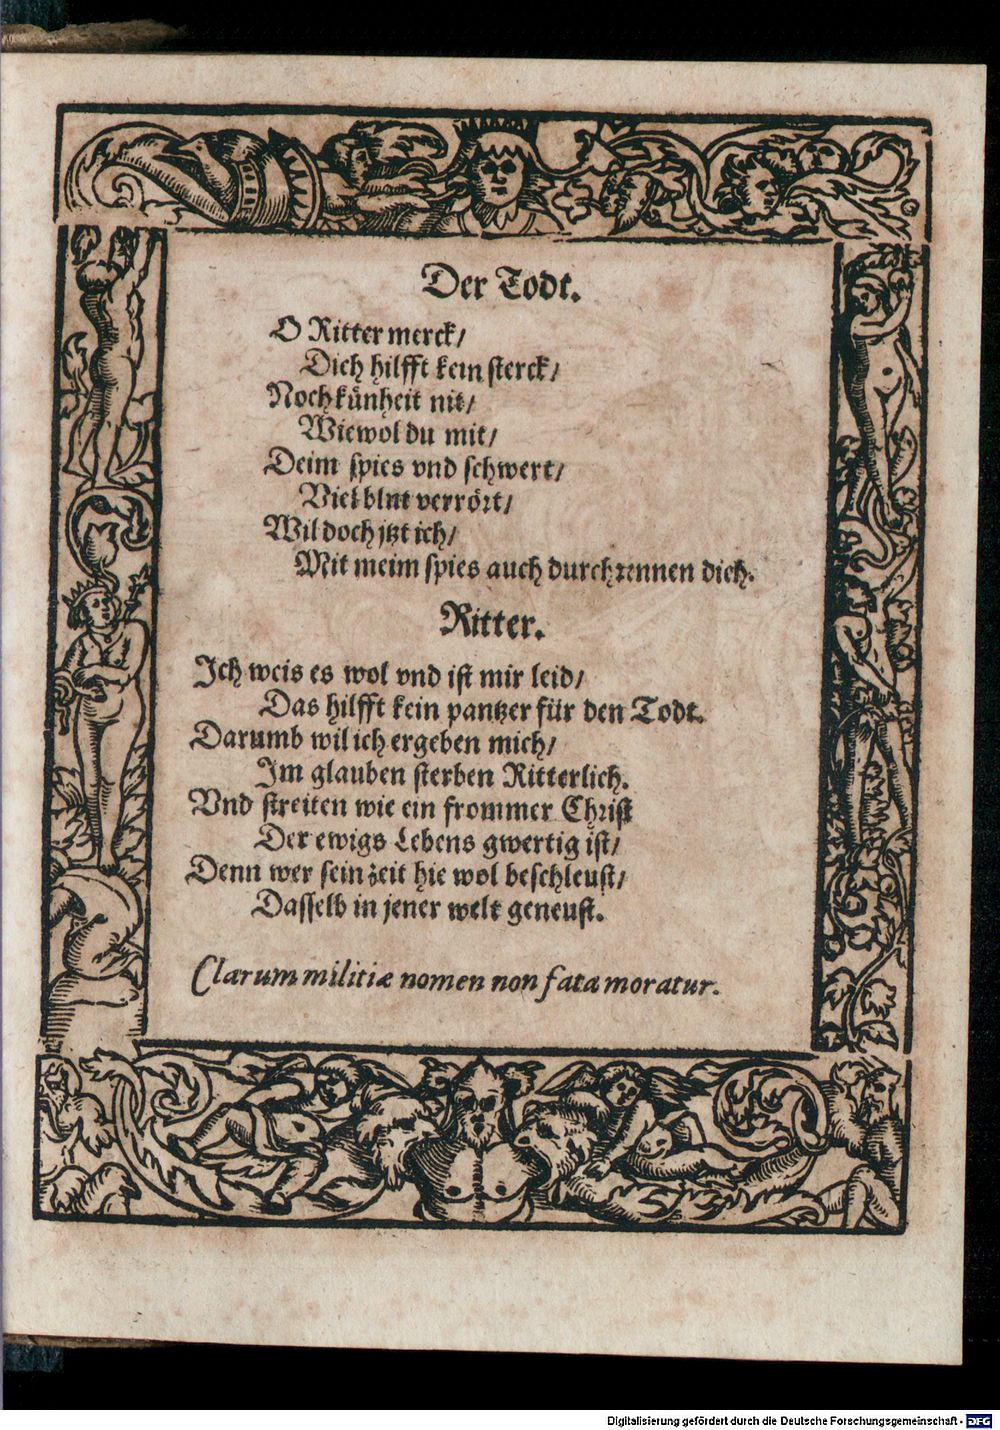 Der Todt.
O Ritter merck/
Dich hilfft kein sterck/
Noch künheit nit/
Wiewol du mit/
Deim spies vnd schwert/
Viel blut verrört/
Wil doch jtzt ich/
Mit meim spies auch durchrennen dich.
Ritter.
Ich weis es wol vnd ist mir leid/
Das hilfft kein pantzer für den Todt.
Darumb wil ich ergeben mich/
Im glauben sterben Ritterlich.
Vnd streiten wie ein frommer Christ
Der ewigs Lebens gwertig ist/
Denn wer sein zeit hie wol beschleust/
Dasselb in jener welt geneust.
Clarum militiæ nomen non fata moratur.
Digitalisierung gefördert durch die Deutsche Forschungsgemeinschaft - DFG